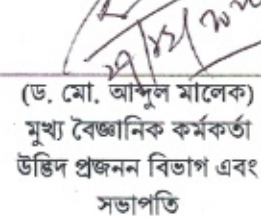 (ড. মো. আব্দুল মালেক)
মুখ্য বৈজ্ঞানিক কর্মকর্তা
উদ্ভিদ প্রজনন বিভাগ এবং
সভাপতি